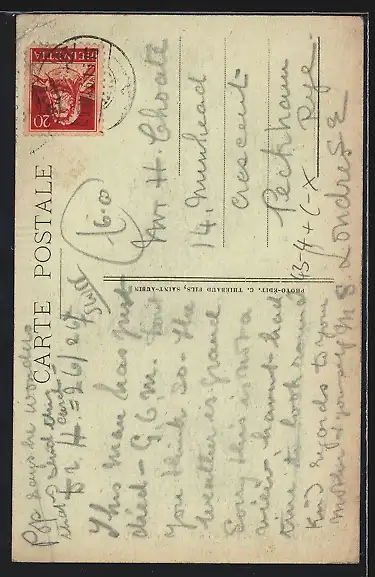 HELVETIA
20
CARTE POSTALE
PHOTO-EDIT. C. THIEBAUD FILS, SAINT-AUBIN
Mr H. Choate
14, Nunhead
Crescent
Peckham
Rye
Londres SE
6.0
Pop says he wonders
send this
card
26/
This man has just
died - 9 6 m. but
you think so - the
weather is grand
Sorry this is not a
view havnt had
time to look round
Kind regards to your
mother & yourself M S